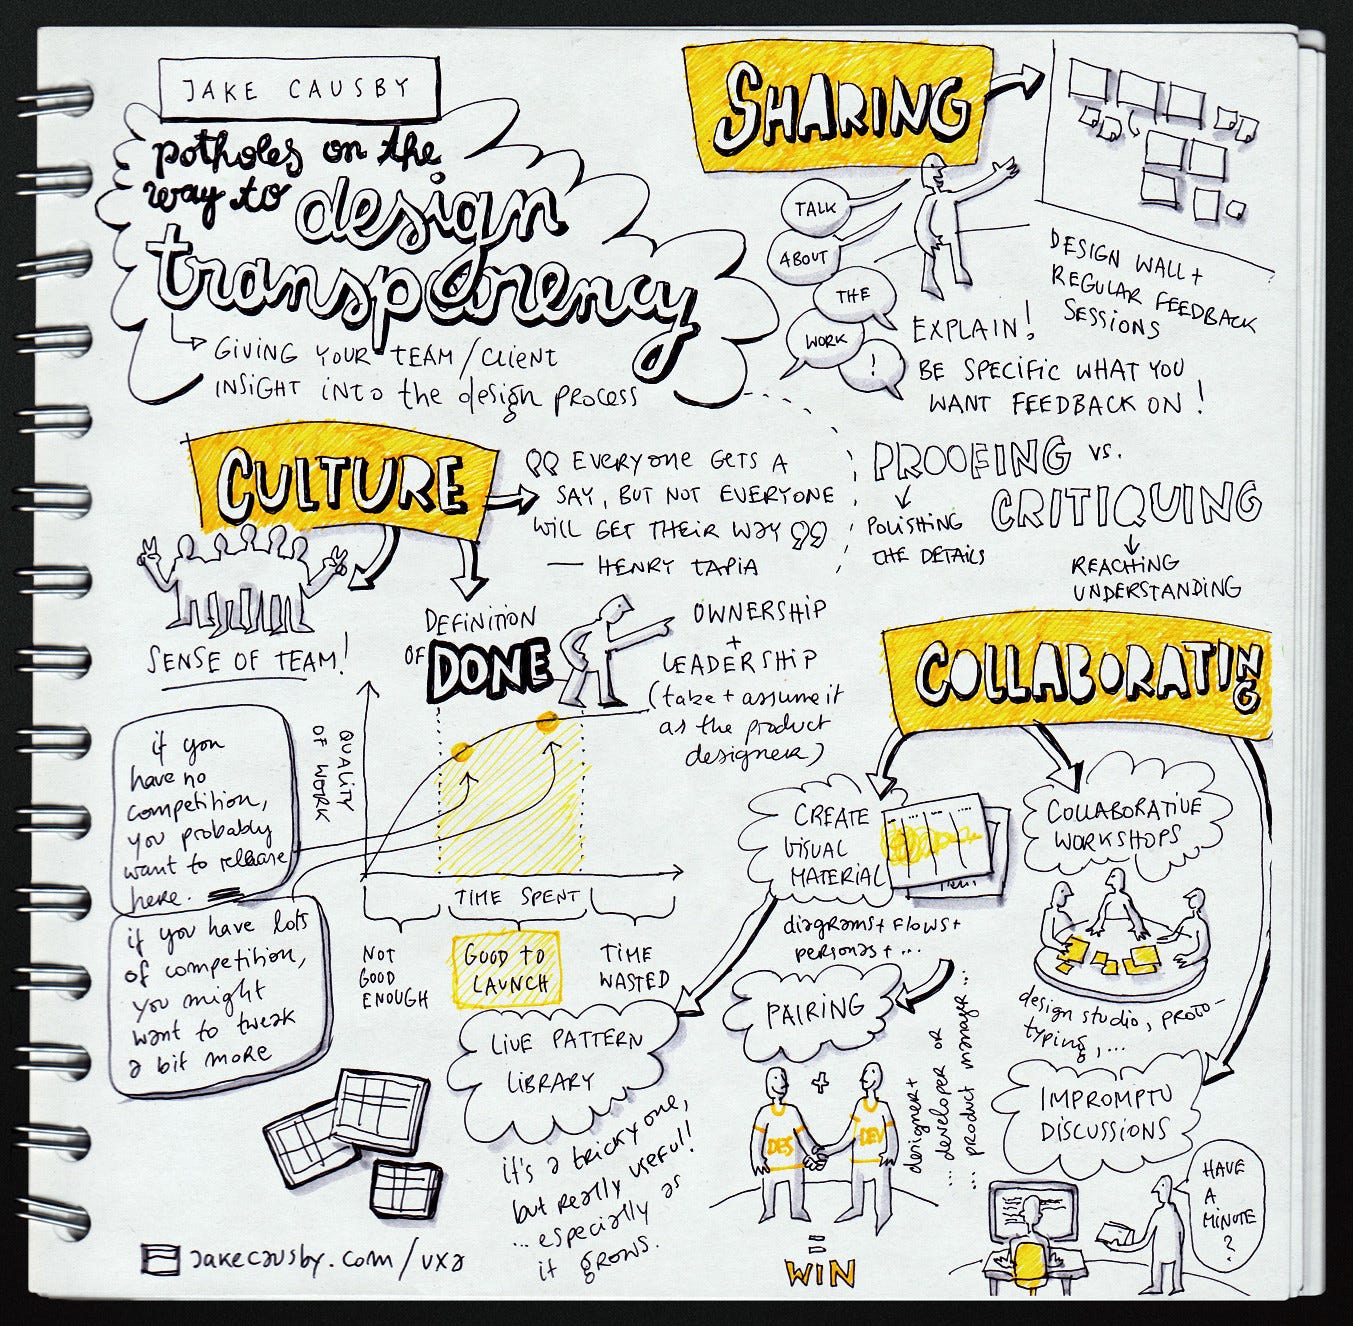 JAKE CAUSBY
potholes on the
way to design
transparency
GIVING YOUR TEAM/CLIENT
INSIGHT INTO the design PROCESS
SHARING
TALK
ABOUT
THE
WORK
!
DESIGN WALL +
REGULAR FEEDBACK
SESSIONS
EXPLAIN!
BE SPECIFIC WHAT YOU
WANT FEEDBACK ON!
CULTURE
EVERYONE GETS A
SAY, BUT NOT EVERYONE
WILL GET THEIR WAY
— HENRY TAPIA
PROOFING vs.
CRITIQUING
POLISHING
THE DETAILS
REACHING
UNDERSTANDING
SENSE OF TEAM!
DEFINITION
OF DONE
OWNERSHIP
+
LEADERSHIP
(take + assume it
as the product
designer)
if you
have no
competition,
you probably
want to release
here.
if you have lots
of competition,
you might
want to tweak
a bit more
QUALITY
OF WORK
TIME SPENT
NOT
GOOD
ENOUGH
GOOD TO
LAUNCH
TIME
WASTED
COLLABORATING
CREATE
VISUAL
MATERIAL
diagrams + flows +
personas + ...
LIVE PATTERN
LIBRARY
it's a tricky one,
but really useful!
... especially as
it grows.
PAIRING
DES
+
DEV
=
WIN
designer +
... developer or
... product manager ...
COLLABORATIVE
WORKSHOPS
design studio, proto-
typing, ...
IMPROMPTU
DISCUSSIONS
HAVE
A
MINUTE
?
jakecausby.com/uxa